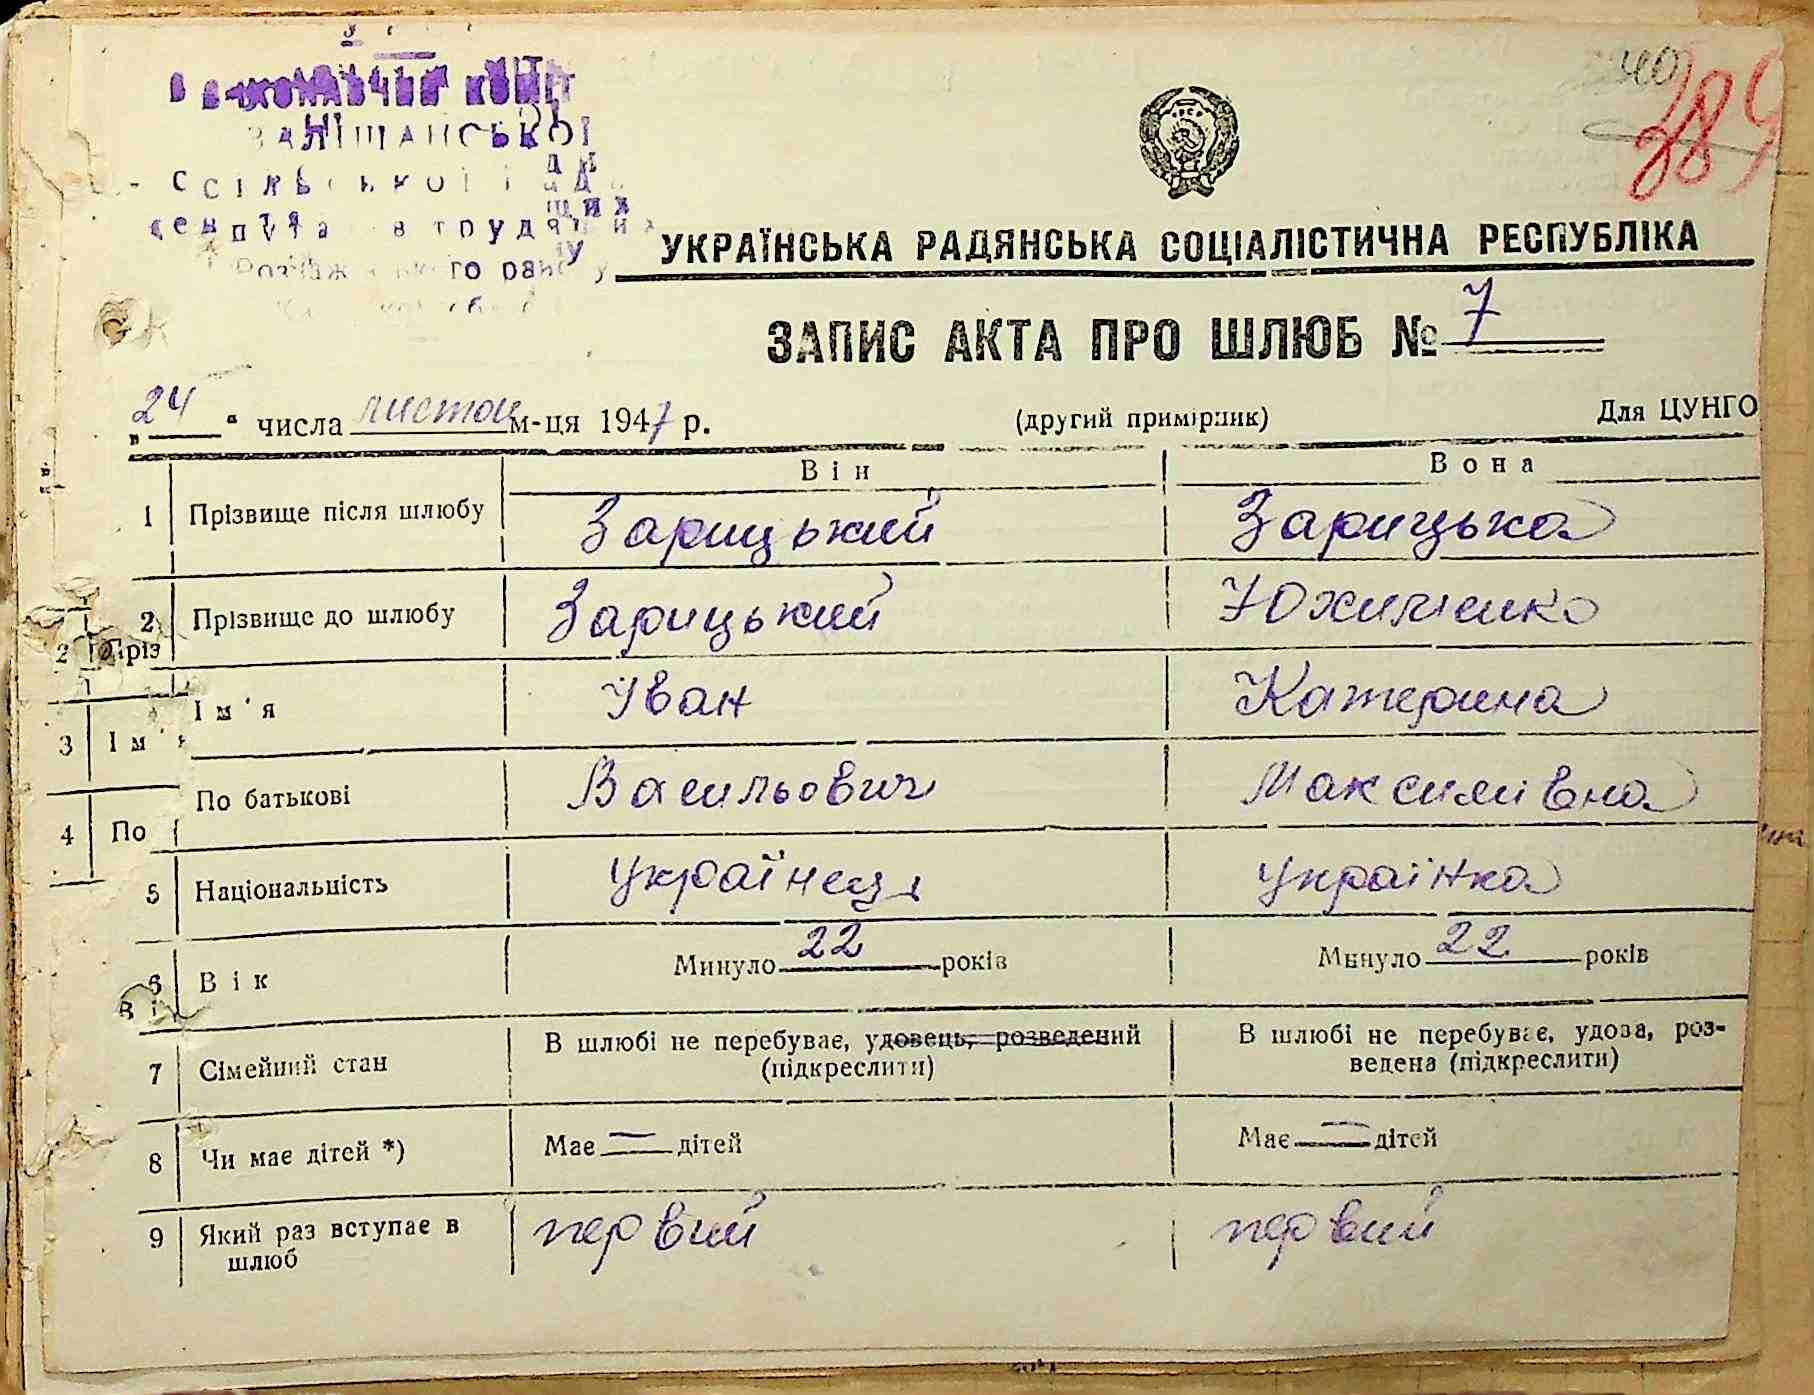 ЗАЛІШАНСЬКОЇ
УКРАЇНСЬКА РАДЯНСЬКА СОЦІАЛІСТИЧНА РЕСПУБЛІКА
40
289
ЗАПИС АКТА ПРО ШЛЮБ № 7
„24“ числа листоп м-ця 1947 р. (другий примірник) Для ЦУНГО
Він Вона
1 Прізвище після шлюбу Зарицький Зарицька
2 Прізвище до шлюбу Зарицький Юхименко
2 Пріз
Ім'я Іван Катерина
3 Ім'я
По батькові Васильович Максимівна
4 По
5 Національність Українець Українка
6 Вік Минуло 22 років Минуло 22 років
7 Сімейний стан В шлюбі не перебуває, удовець, розведений В шлюбі не перебуває, удова, роз-
(підкреслити) ведена (підкреслити)
8 Чи має дітей *) Має — дітей Має — дітей
9 Який раз вступає в первий первий
шлюб